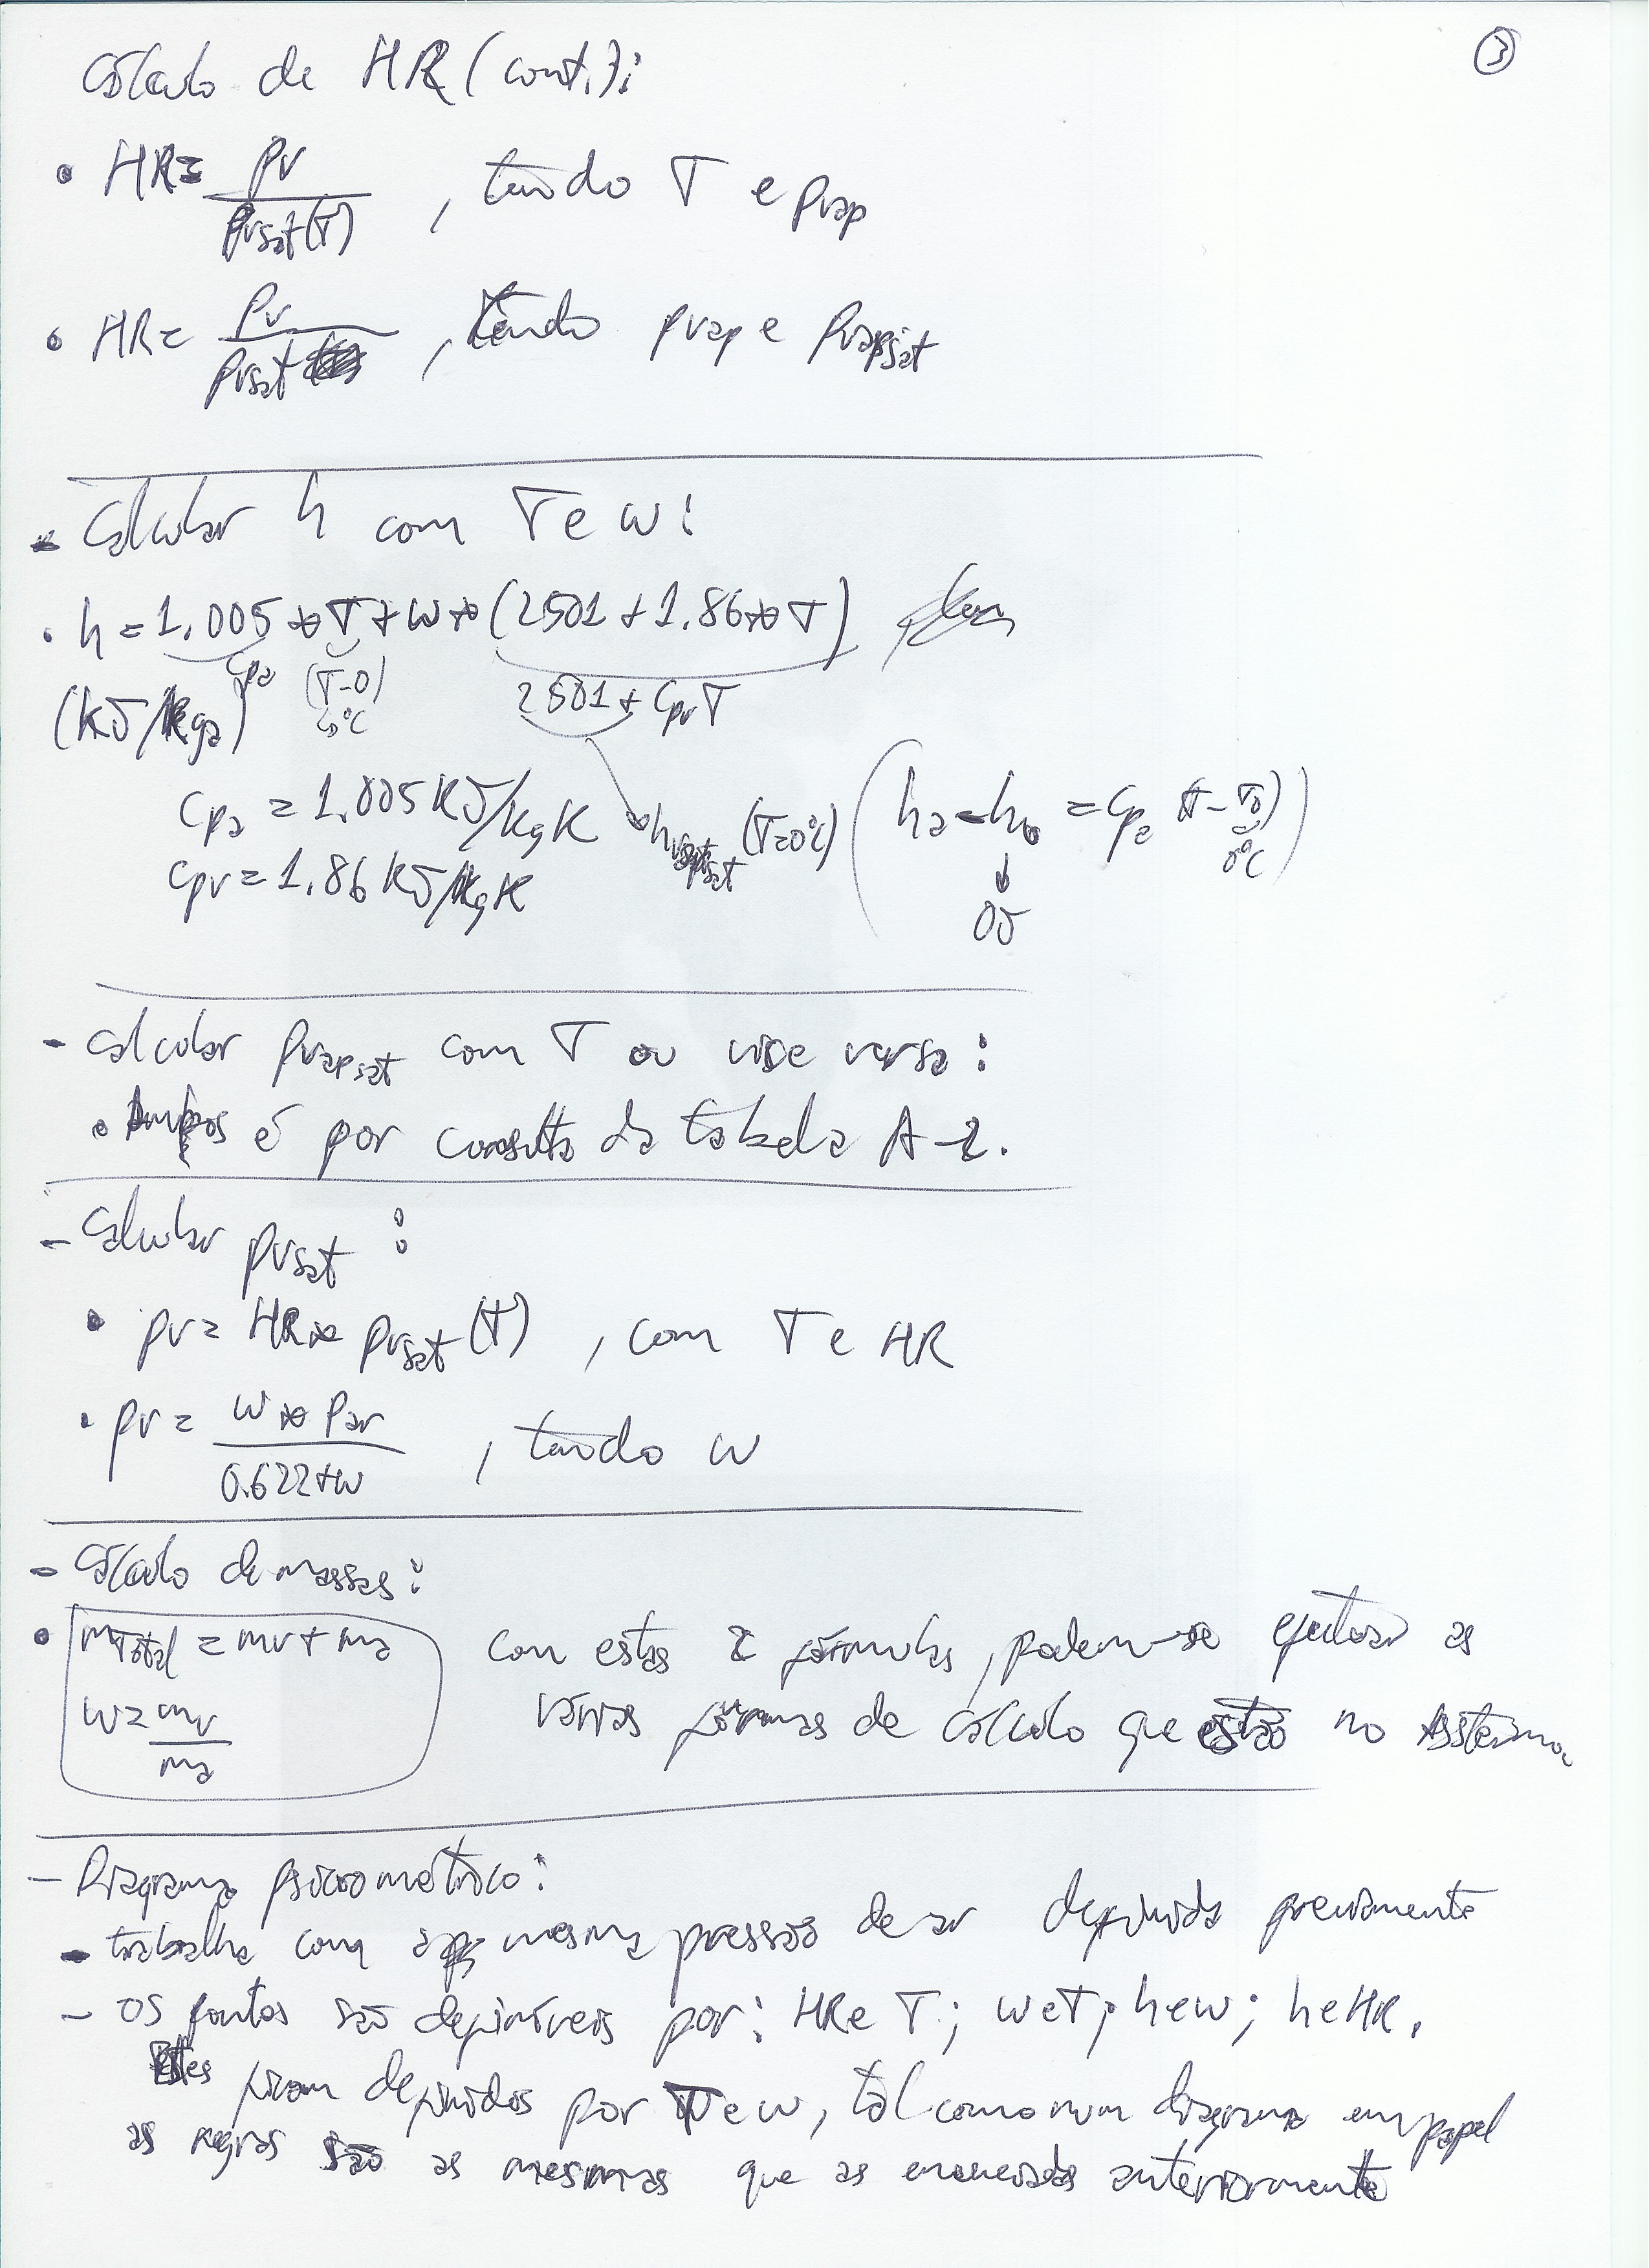 ③
Cálculo de HR (cont.):
• HR = pv / pvsat(T) , tendo T e pvap
• HR = pv / pvsat , tendo pvap e pvapsat
- Calcular h com T e w:
• h = 1.005 * T + w * (2501 + 1.86 * T)
cpa (T-0) 2501 + cpv T
(kJ/kga) ↳ 0°C
cpa = 1.005 kJ/kg K → hvapsat (T=0°C) (ha - h0 = cpa (T - T0))
cpv = 1.86 kJ/kg K ↓ 0°C
0J
- Calcular pvapsat com T ou vice versa:
• Ambos é por consulta da tabela A-2.
- Calcular pvsat :
• pv = HR * pvsat (T) , com T e HR
• pv = w * par / 0.622+w , tendo w
- Cálculo de massas:
• mTotal = mv + ma
w = mv / ma
Com estas 2 fórmulas, podem-se efectuar as
várias formas de cálculo que estão no sistema.
- Diagrama psicrométrico:
- trabalha com a mesma pressão de ar definida previamente
- os pontos são definíveis por: HR e T; w e T; h e w; h e HR.
Estes ficam definidos por T e w, tal como num diagrama em papel
as regras são as mesmas que as enunciadas anteriormente